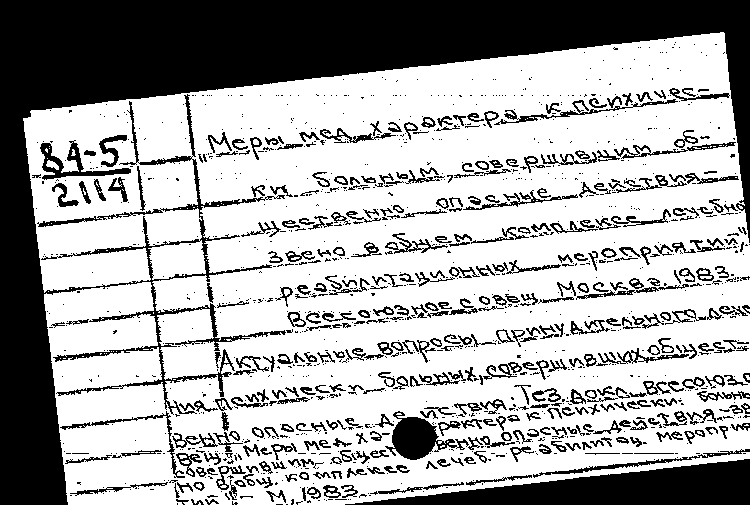 84-5
2114
"Меры мед. характера к психичес-
ки больным, совершившим об-
щественно опасные действия-
звено в общем комплексе лечебно
реабилитационных мероприятий",
Всесоюзное совещ. Москва. 1983.
Актуальные вопросы принудительного лече
ния психически больных, совершивших общест-
венно опасные действия: Тез. докл. Всесоюз. с
вещ. "Меры мед. ха- рактера к психически. больны
совершившим общест венно опасные действия-зве
но в общ. комплексе лечеб.- реабилитац. мероприя
тий" - М, 1983.